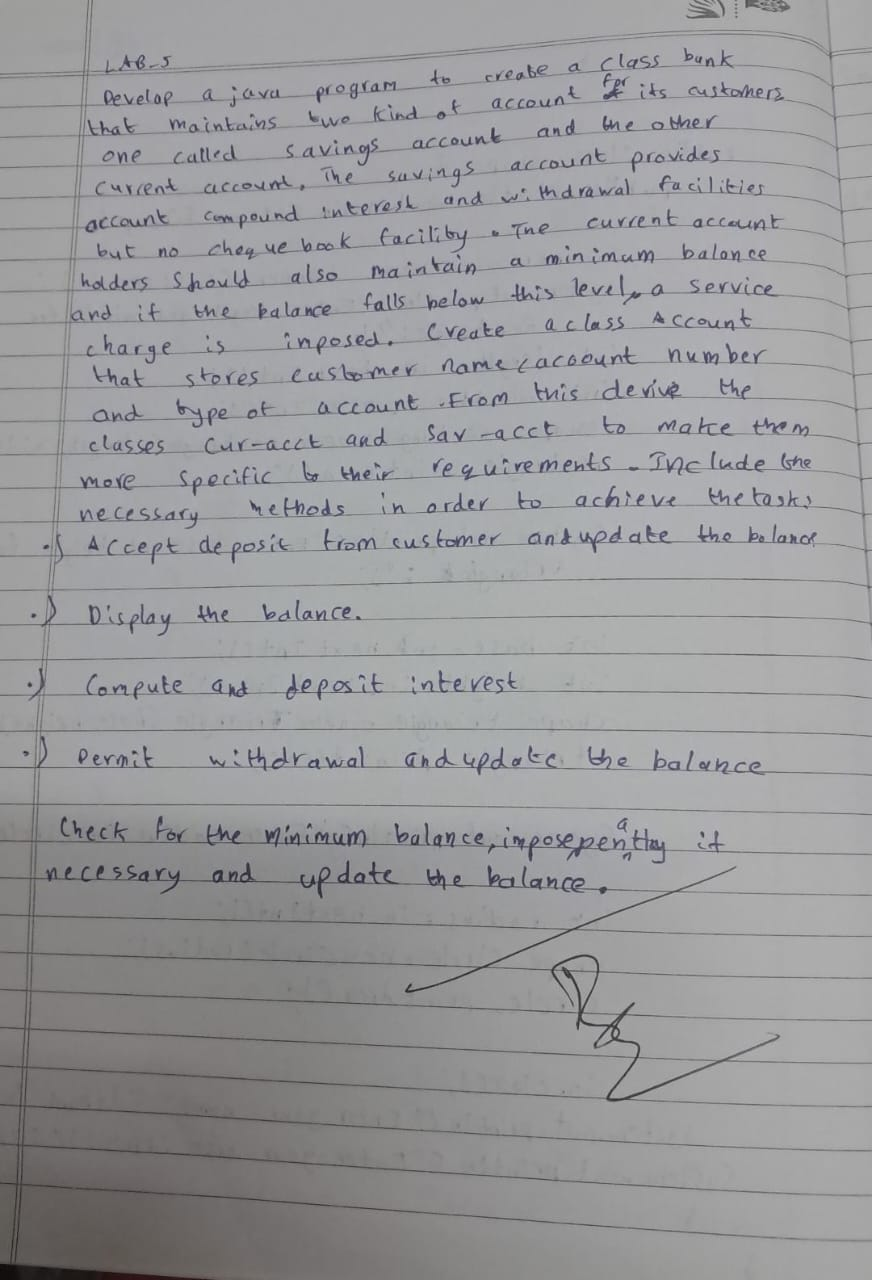 LAB-5
Develop a java program to create a class bank
that maintains two kind of account for its customers
one called savings account and the other
current account. The savings account provides
account compound interest and withdrawal facilities
but no cheque book facility. The current account
holders should also maintain a minimum balance
and if the balance falls below this level, a service
charge is inposed. Create a class Account
that stores customer name, account number
and type of account. From this derive the
classes Cur-acct and Sav-acct to make them
more specific to their requirements. Include the
necessary methods in order to achieve the task:
•) Accept deposit from customer and update the balance
•) Display the balance.
•) Compute and deposit interest
•) Permit withdrawal and update the balance
Check for the minimum balance, impose if
necessary and update the balance.